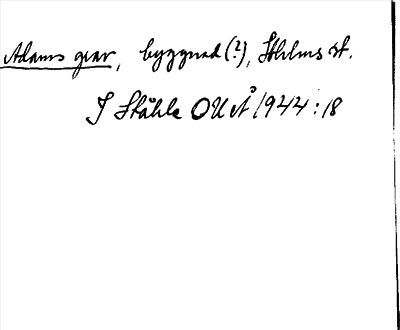 Adams grav, byggnad (?), Sthlms st.
I Ståhle OUÅ 1944:18